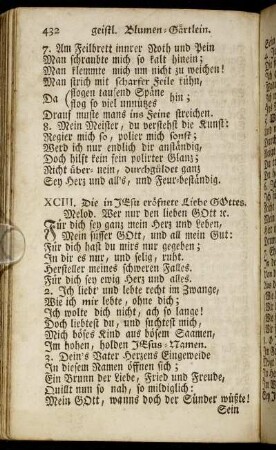 432 geistl. Blumen-Gärtlein.
7. Am Feilbrett innrer Noth und Pein
Man schraubte mich so kalt hinein;
Man klemmte mich um nicht zu weichen!
Man strich mit scharfer Feile kühn,
Da (flogen tausend Späne
flog so viel unnützes hin;
Drauf muste mans ins Feine streichen.
8. Mein Meister, du verstehst die Kunst:
Regier mich so, polier mich sonst;
Werd ich nur endlich dir anständig,
Doch hilft kein fein polirter Glanz;
Nicht über- nein, durchgüldet ganz
Sey Herz und all's, und Feur-beständig.
XCIII. Die in JEsu eröfnete Liebe GOttes.
Melod. Wer nur den lieben GOtt ꝛc.
Für dich sey ganz mein Herz und Leben,
Mein süsser GOtt, und all mein Gut:
Für dich hast du mirs nur gegeben;
In dir es nur, und selig, ruht.
Hersteller meines schweren Falles.
Für dich sey ewig Herz und alles.
2. Ich liebt und lebte recht im Zwange,
Wie ich mir lebte, ohne dich;
Ich wolte dich nicht, ach so lange!
Doch liebtest du, und suchtest mich,
Mich böses Kind aus bösem Saamen,
Im hohen, holden JEsus-Namen.
3. Dein's Vater Herzens Eingeweide
In diesem Namen öffnen sich;
Ein Brunn der Liebe, Fried und Freude,
Quillt nun so nah, so mildiglich:
Mein GOtt, wanns doch der Sünder wüßte!
Sein